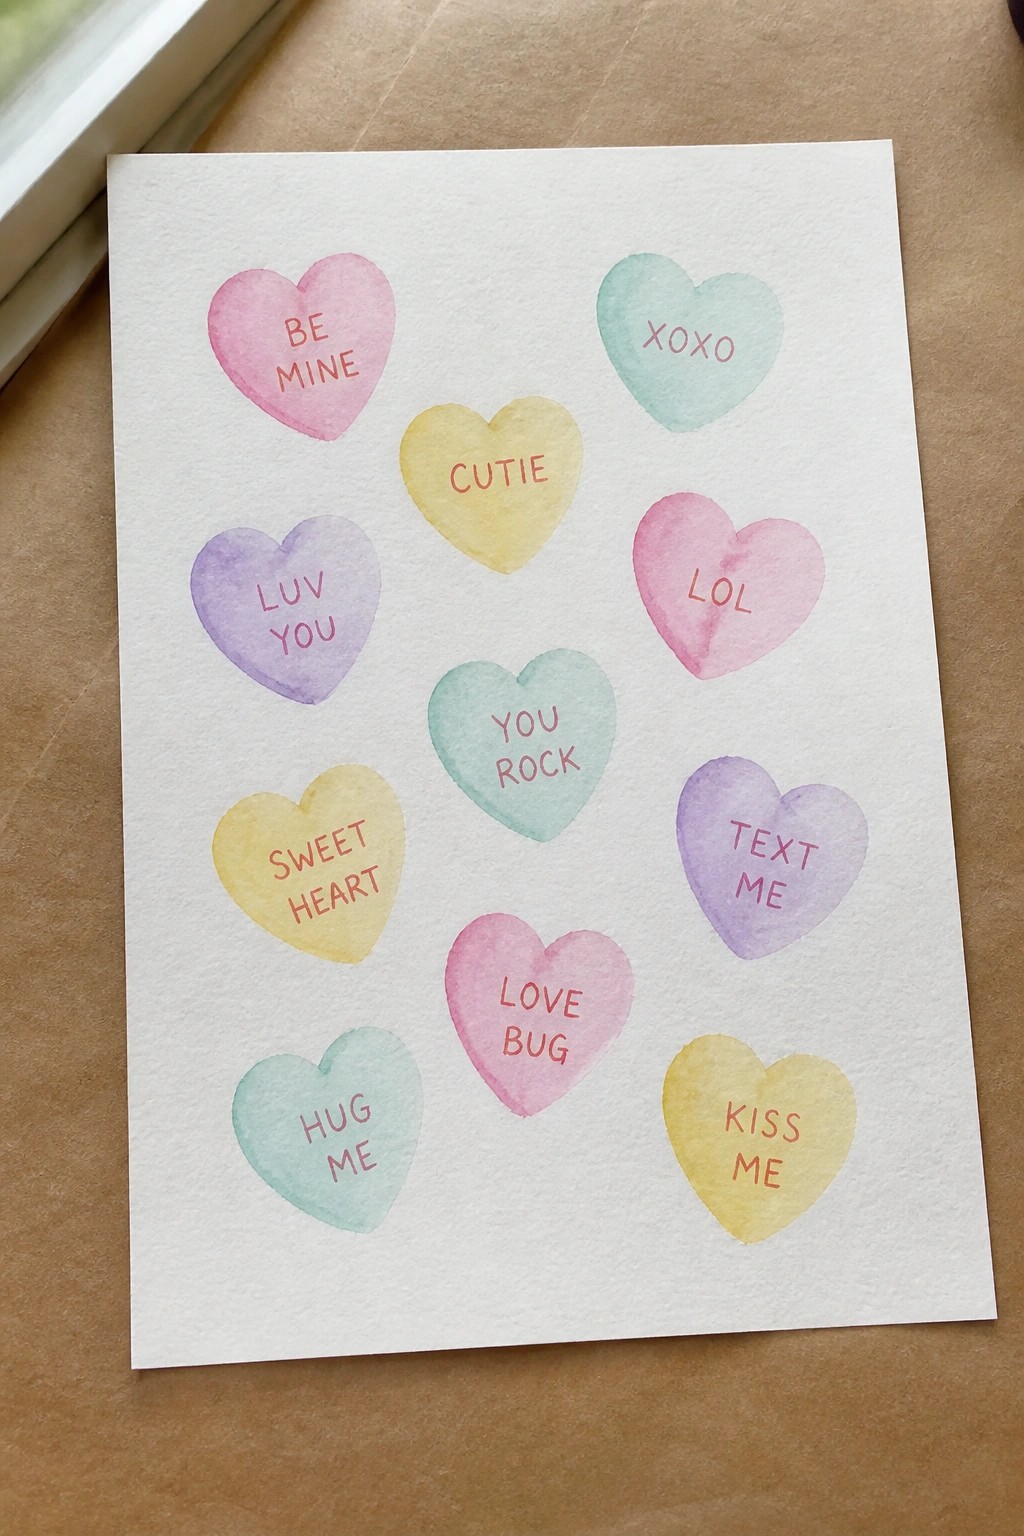 BE
MINE
XOXO
CUTIE
LUV
YOU
LOL
YOU
ROCK
SWEET
HEART
TEXT
ME
LOVE
BUG
HUG
ME
KISS
ME